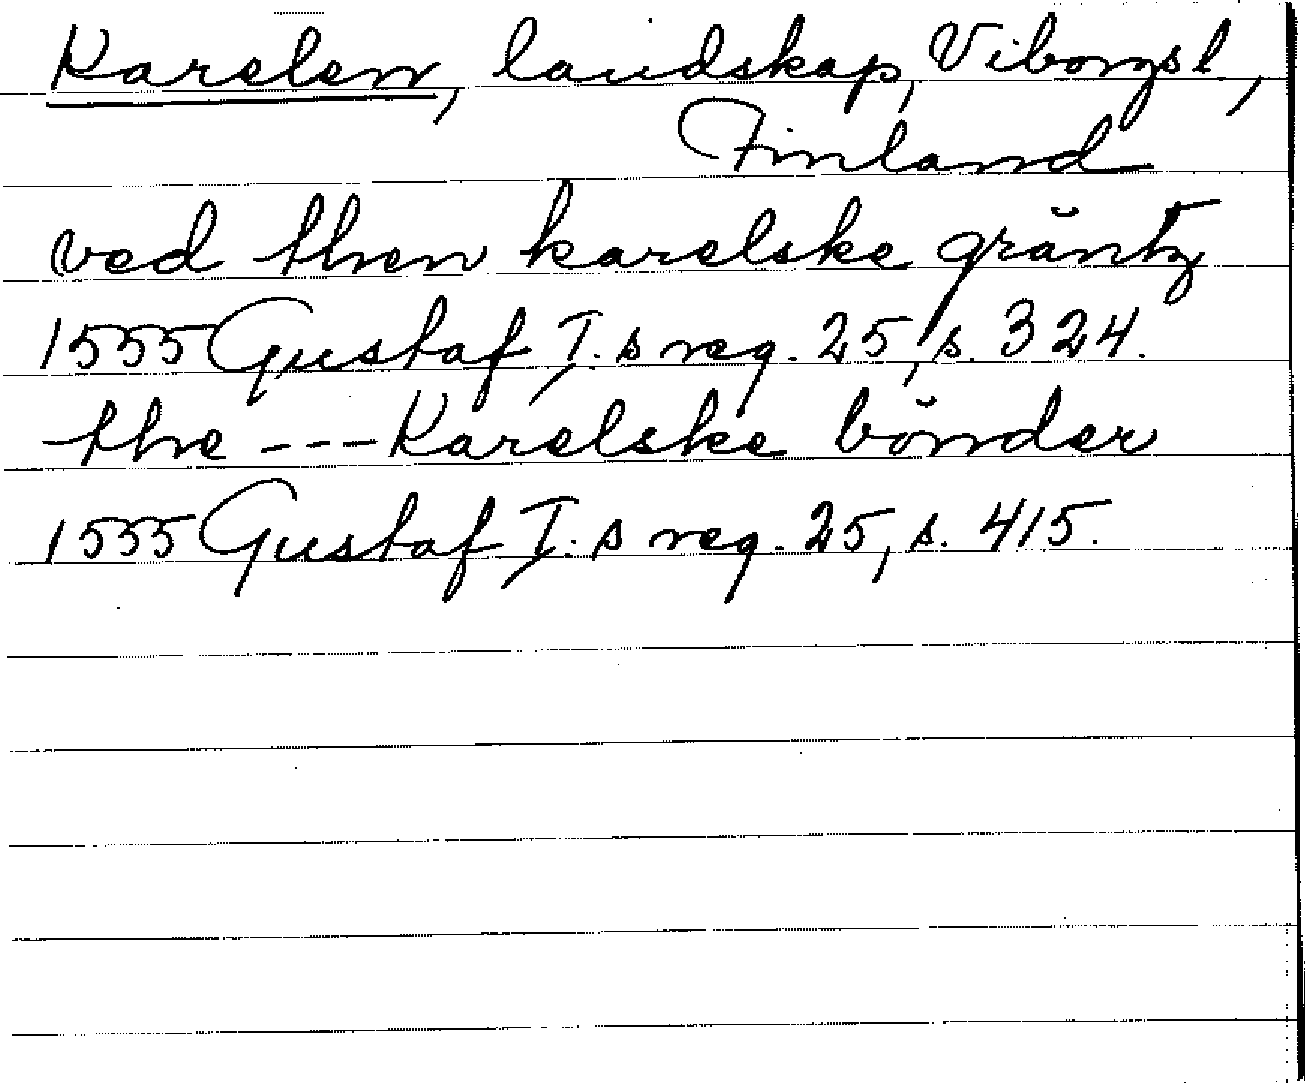 Karelen, landskap, Viborgsl,
Finland
ved then karelske gräntz
1555 Gustaf I.s reg. 25, s. 324.
the --- Karelske bönder
1555 Gustaf I.s reg. 25, s. 415.